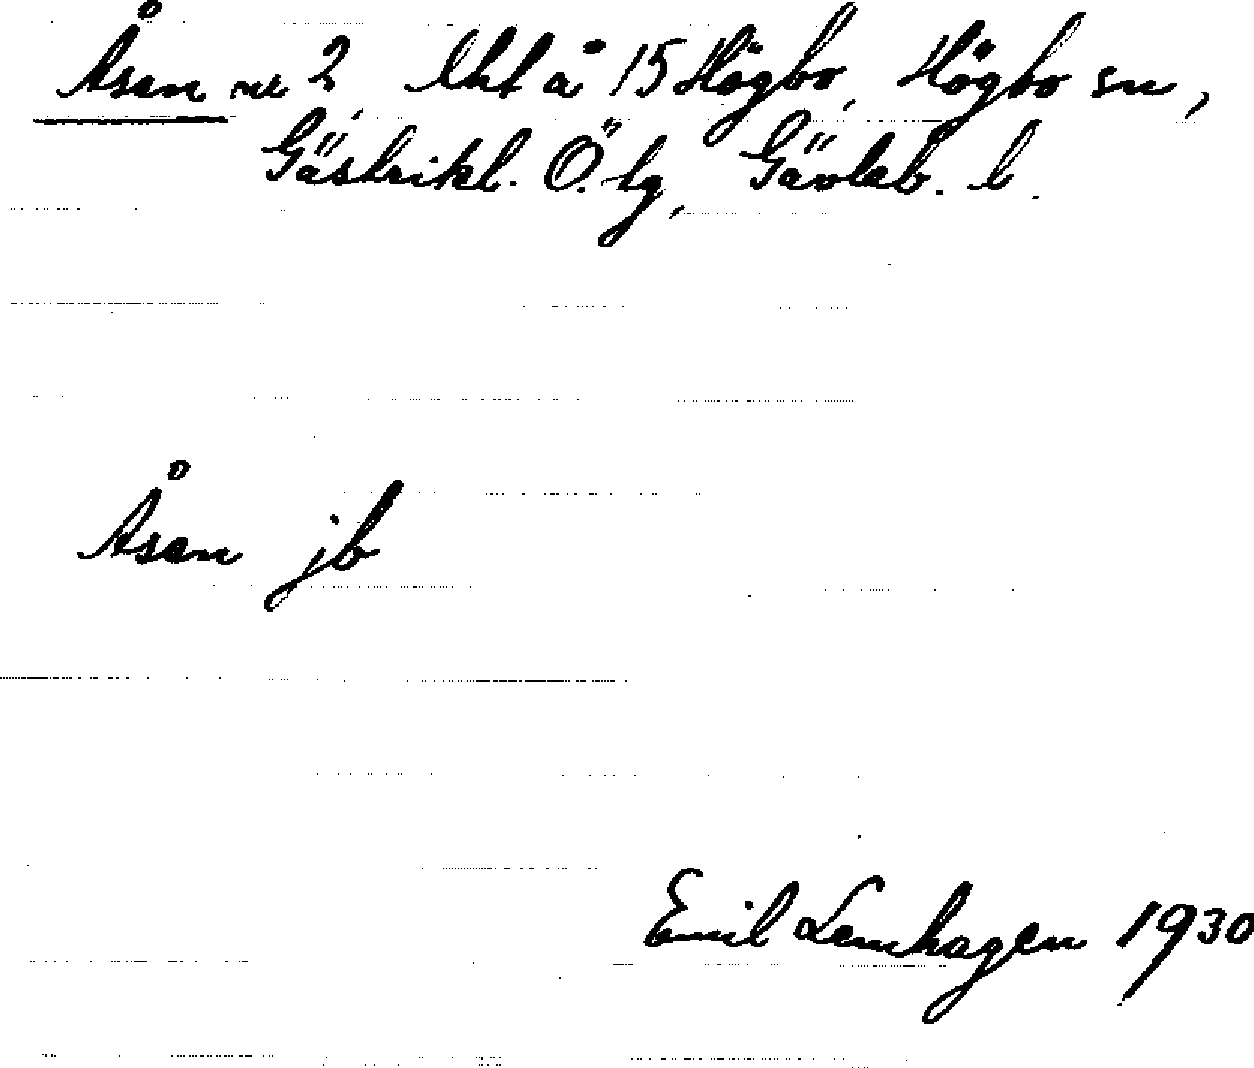 Åsen nr 2, Uht å 15 Högbo, Högbo sn,
Gästrikl. Ö. tg, Gävleb. l.
Åsen jb
Emil Lenhagen 1930